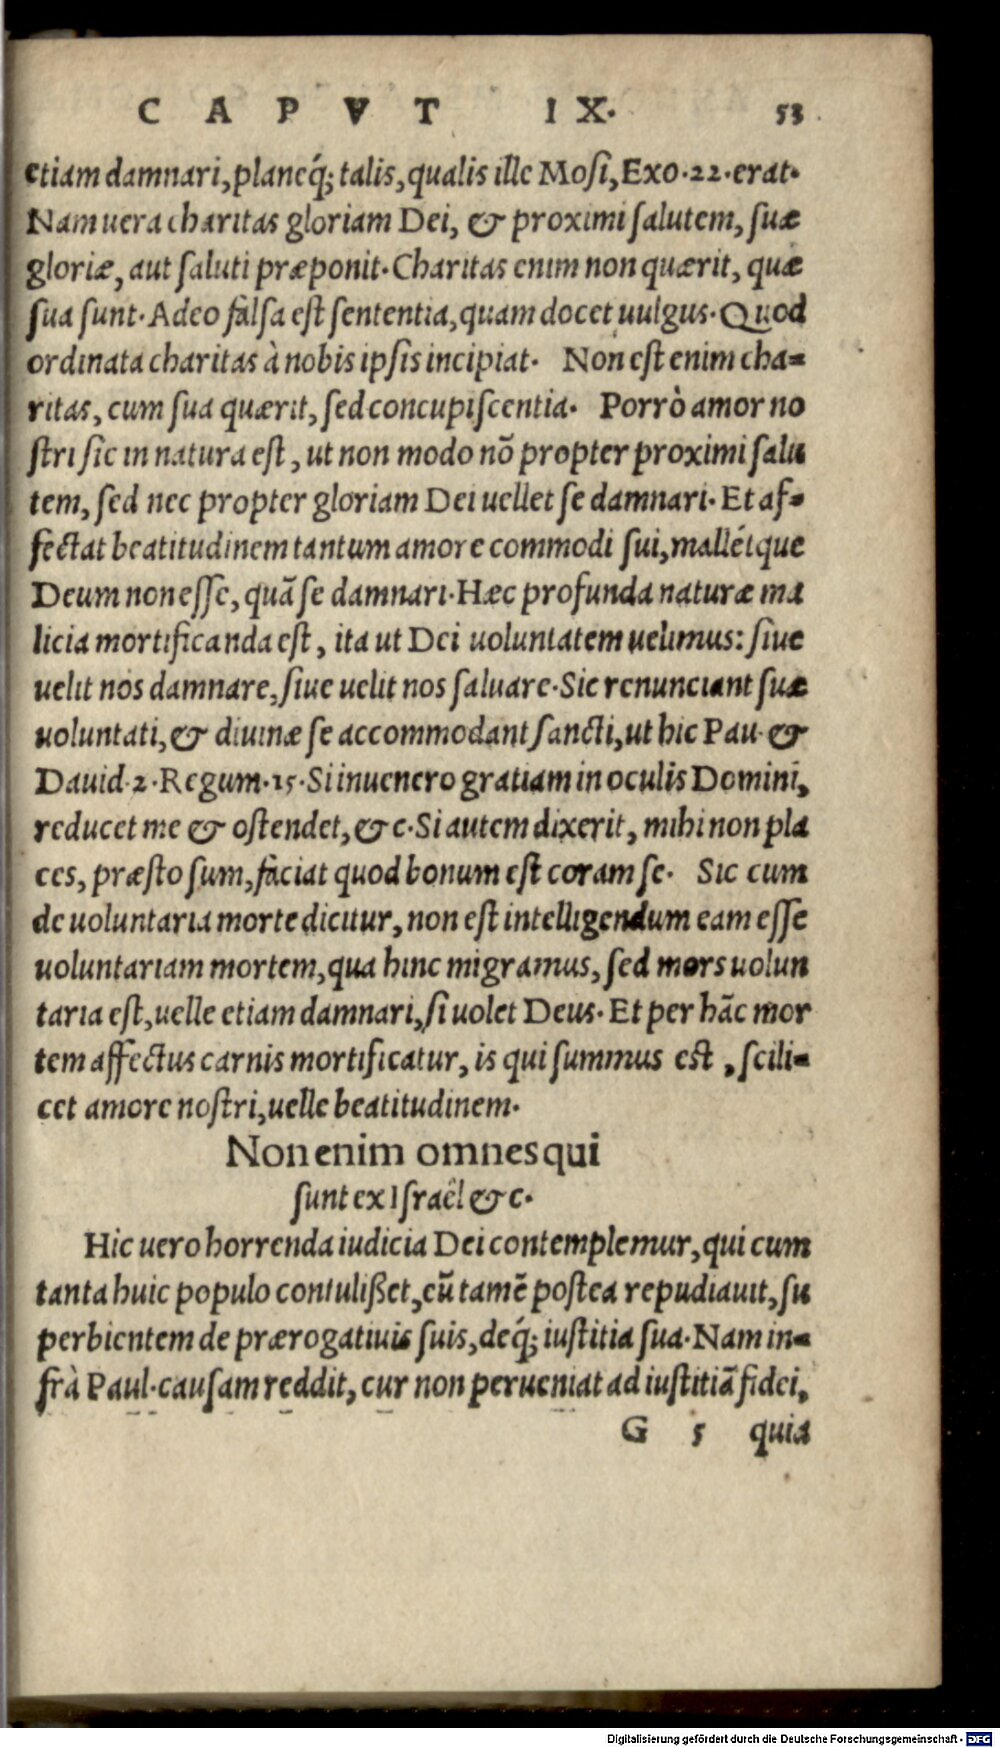 CAPVT IX. 53
etiam damnari, planeq́; talis, qualis ille Mosi, Exo. 22. erat.
Nam uera charitas gloriam Dei, & proximi salutem, suæ
gloriæ, aut saluti præponit. Charitas enim non quærit, quæ
sua sunt. Adeo falsa est sententia, quam docet uulgus. Quod
ordinata charitas à nobis ipsis incipiat. Non est enim cha-
ritas, cum sua quærit, sed concupiscentia. Porrò amor no
stri sic in natura est, ut non modo nõ propter proximi salu
tem, sed nec propter gloriam Dei uellet se damnari. Et af-
fectat beatitudinem tantum amore commodi sui, malléique
Deum non esse, quã se damnari. Hæc profunda naturæ ma
licia mortificanda est, ita ut Dei uoluntatem uelimus: siue
uelit nos damnare, siue uelit nos saluare. Sic renunciant suæ
uoluntati, & diuinæ se accommodant sancti, ut hic Pau. &
Dauid. 2. Regum. 15. Si inuenero gratiam in oculis Domini,
reducet me & ostendet, & c. Si autem dixerit, mihi non pla
ces, præsto sum, faciat quod bonum est coram se. Sic cum
de uoluntaria morte dicitur, non est intelligendum eam esse
uoluntariam mortem, qua hinc migramus, sed mors uolun
taria est, uelle etiam damnari, si uolet Deus. Et per hãc mor
tem affectus carnis mortificatur, is qui summus est, scili-
cet amore nostri, uelle beatitudinem.
Non enim omnes qui
sunt ex Israêl & c.
Hic uero horrenda iudicia Dei contemplemur, qui cum
tanta huic populo contulißet, eũ tamẽ postea repudiauit, su
perbientem de prærogatiuis suis, deq́; iustitia sua. Nam in-
frà Paul. causam reddit, cur non perueniat ad iustitiã fidei,
G 5 quia
Digitalisierung gefördert durch die Deutsche Forschungsgemeinschaft - DFG